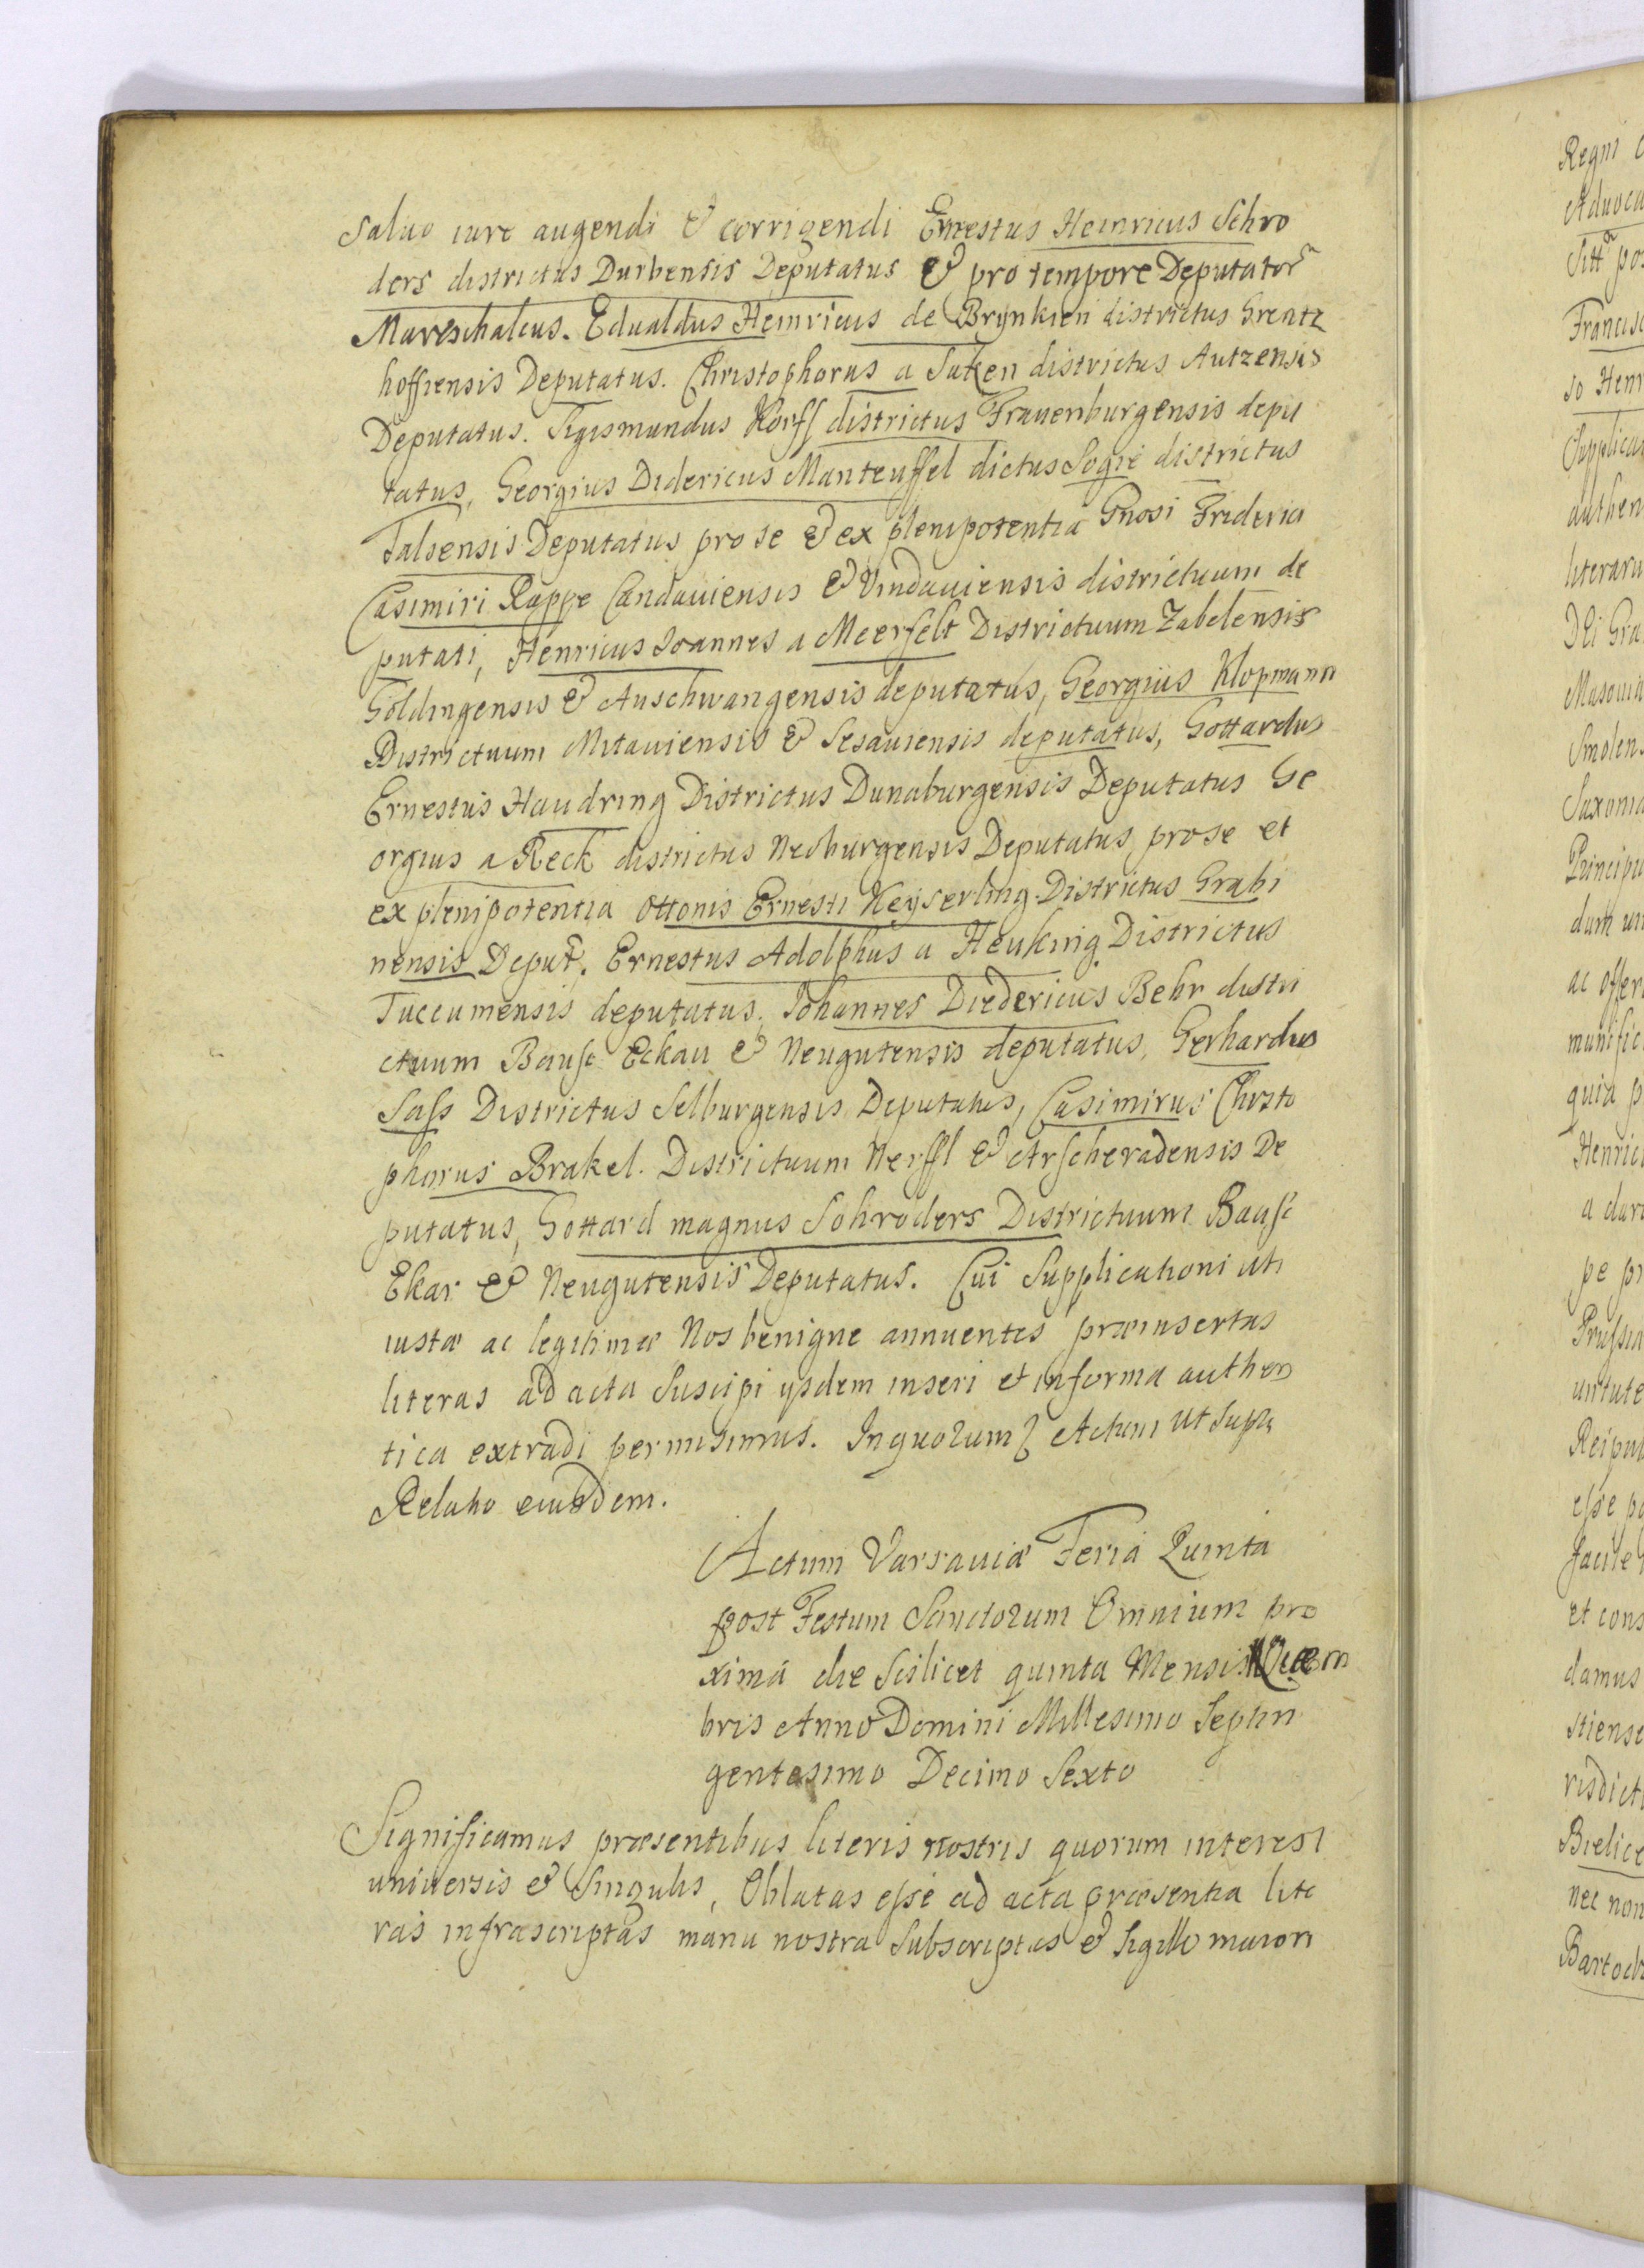 Saluo iure augendi & corrigendi Ernestus Heinricus Schro
ders districtus Durbensis Deputatus & pro tempore Deputator~
Mareschalcus. Edualdus Heinricus de Brynkien districtus Grentz
hoffiensis Deputatus. Christophorus a Saken districtus Autzensis
Deputatus. Sigismundus Korff districtus Frauenburgensis depu
tatus, Georgius Didericus Manteuffel dictus Sogie districtus
Talsensis Deputatus pro se & ex plenipotentia Gnosi Friderici
Casimiri Rappe Candauiensis & Vindauiensis districtuum de
putati, Henricus Ioannes a Meerfelt Districtuum Zabelensis
Goldingensis & Auschwangensis deputatus, Georgius Klopmann
Districtuum Mitauiensis & Sesauiensis deputatus, Gottardus
Ernestus Haudring Districtus Dunaburgensis Deputatus Ge
orgius a Reck districtus Neoburgensis Deputatus pro se et
ex plenipotentia Ottonis Ernesti Keyserling Districtus Grabi
nensis Deput~. Ernestus Adolphus a Heuking Districtus
Tuccumensis deputatus, Johannes Diedericus Behr distri
ctuum Bausc Eckau & Neugutensis deputatus, Gerhardus
Sass Districtus Selburgensis Deputatus, Casimirus Christo
phorus Brakel. Districtuum Nerffl & Ascheradensis De
putatus, Gottard magnus Schroders Districtuum Bausc
Ekar & Neugutensis Deputatus. Cui Supplicationi uti
iustæ ac legitimæ Nos benigne annuentes præinsertas
literas ad acta Suscipi ysdem inseri et in forma authen
tica extradi permisimus. In quorum Actum ut Supra
Relatio eiusdem.
Actum Varsauiæ Feria Quinta
post Festum Sanctorum Omnium pro
xima die Scilicet quinta Mensis
bris Anno Domini Millesimo Septin
gentesimo Decimo Sexto
Significamus præsentibus literis nostris quorum interest
universis & Singulis, Oblatas esse ad acta præsentia lite
ras infrascriptas manu nostra Subscriptas & Sigillo maiori
Regni
Sitt~
Francisc
so Henr
Supplicat
authen
literaru
Dei Gra
Masouiæ
Smolens
Saxoniæ
Principu
ac offer
munific
quia p
Henrici
a dare
pe pr
Prussiæ
uirtute
Reipub
esse po
facile
et cons
damus
stiense
risdicti
Bielice
nec non